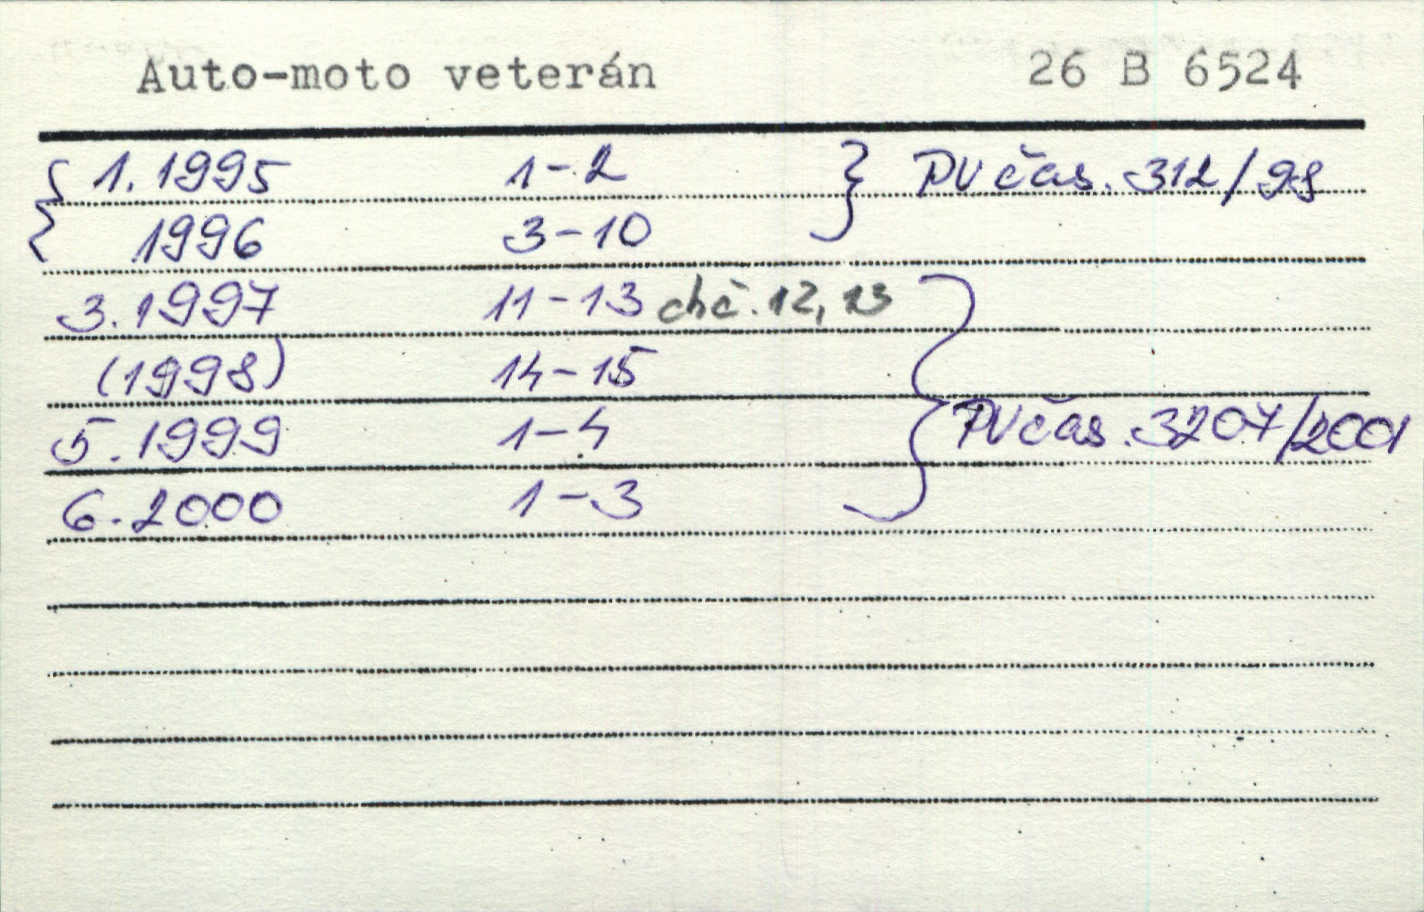 Auto-moto veterán 26 B 6524
{ 1. 1995 1-2 } PV čas. 312/98
1996 3-10
3. 1997 11-13 chč. 12, 13
(1998) 14-15
5. 1999 1-4 } PV čas. 3207/2001
6. 2000 1-3